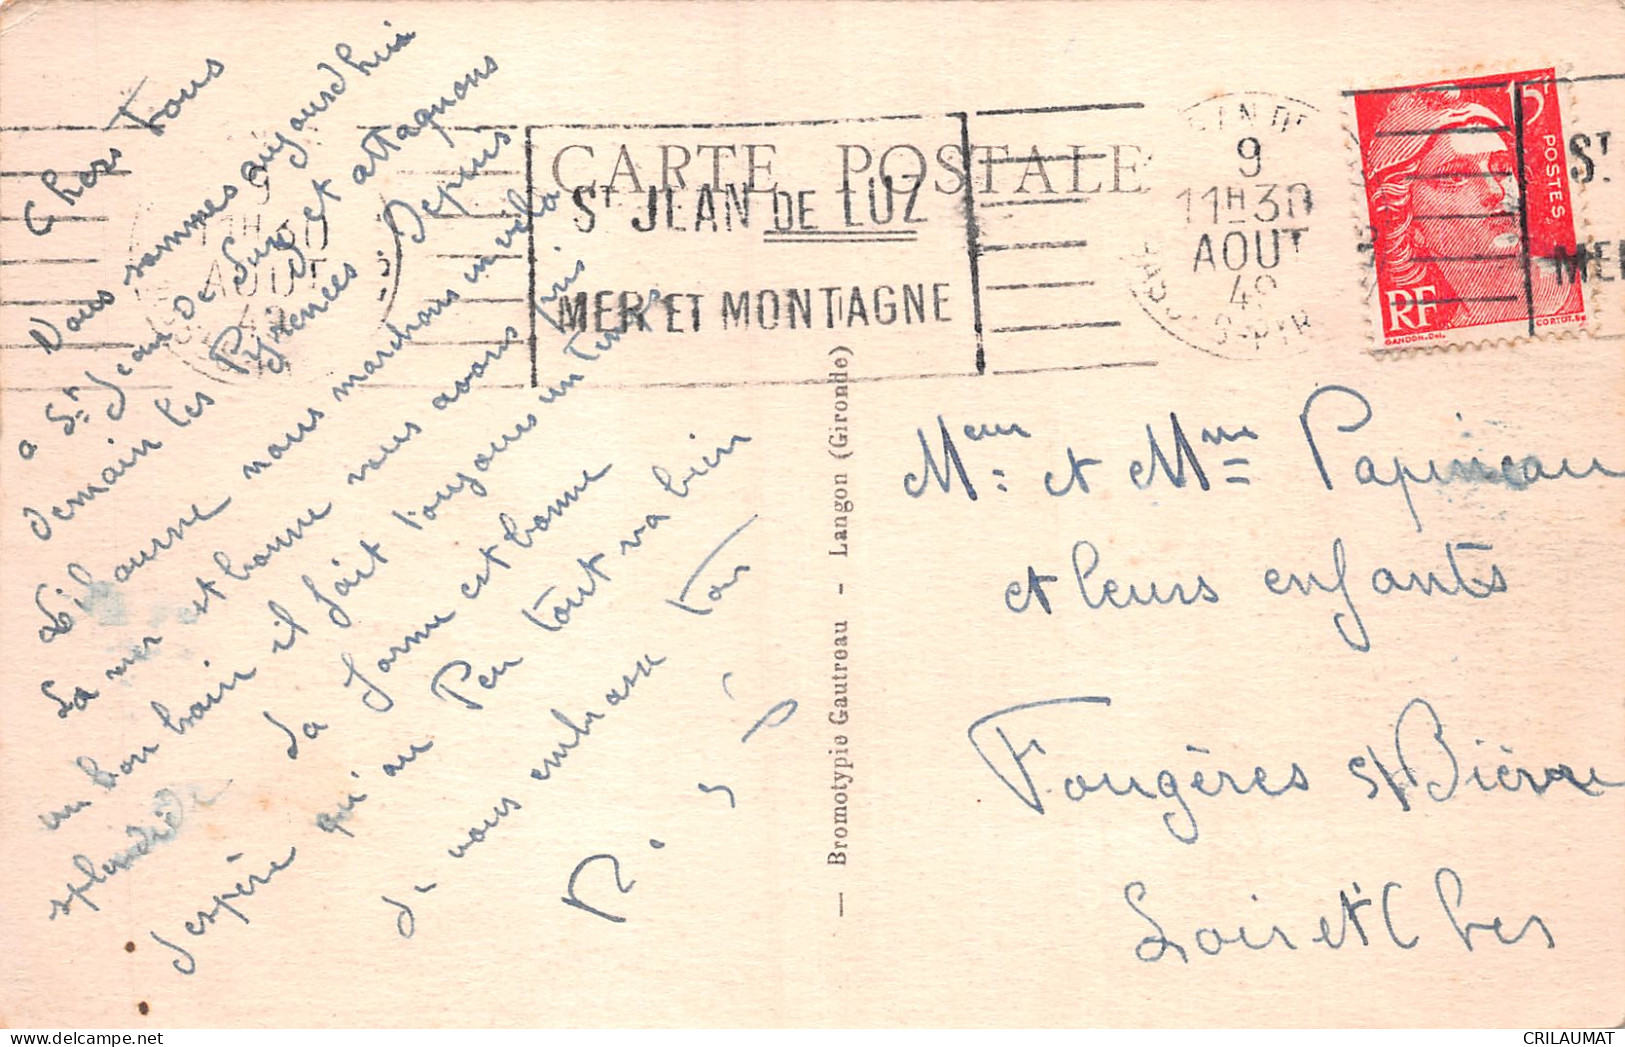 Chers Tous
Nous sommes aujourd'hui
a St Jean de Luz et attaquons
demain les Pyrénées Depuis
Libourne nous marchons
La mer est bonne nous avons pris
un bon bain il fait toujours un temps
splendide La forme est bonne
J'espère qu'au Peu tout va bien
Je vous embrasse tous
CARTE POSTALE
ST JEAN DE LUZ
MER ET MONTAGNE
9
11H30
AOUT
49
9
11H30
AOUT
49
15F
POSTES
RF
GANDON.Del.
CORTOT.
ST
MER
— Bromotypie Gautreau - Langon (Gironde)
Meur et Mme Papineau
et leurs enfants
Fougères s/ Bièvre
Loir et Cher
CRILAUMAT
www.delcampe.net